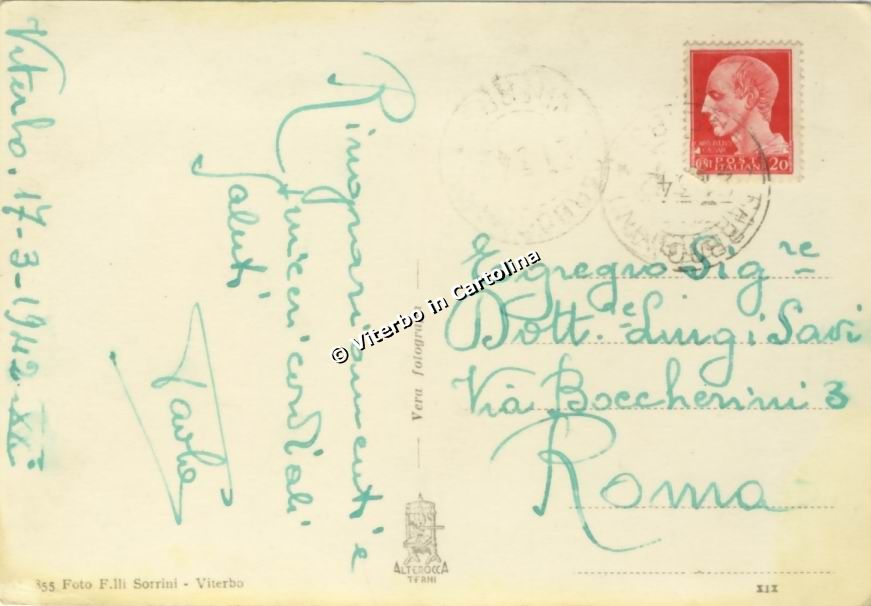 Viterbo. 17-3-1942-XX:
Ringraziamenti e
sinceri cordiali
saluti
Egregio Sig.re
Dott.re Luigi Savi
Via Boccherini 3
Roma
Vera fotografia
© Viterbo in Cartolina
POSTE
ITALIANE
20
ALTEROCCA
TERNI
855 Foto F.lli Sorrini - Viterbo
XIX